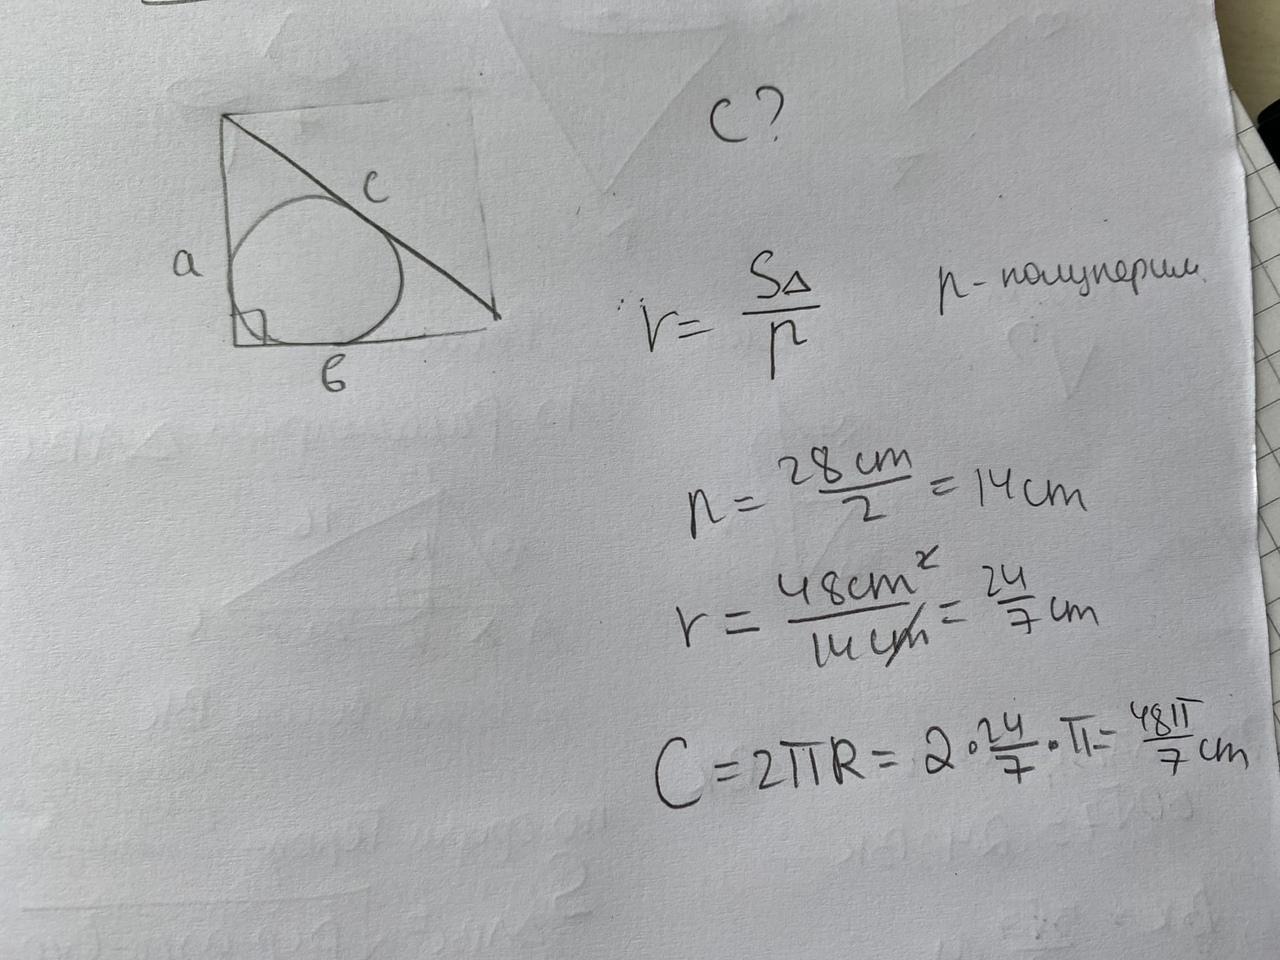 C?
a
c
в
r = S△/p
p - полуперим.
p = 28 cm/2 = 14 cm
r = 48 cm²/14 cm = 24/7 cm
C = 2πR = 2 · 24/7 · π = 48π/7 cm